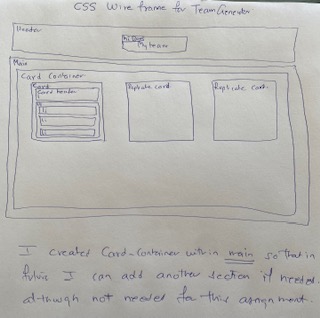 CSS Wire frame for TeamGenerator
Header
My team
Main
Card Container
Card
Card header
li
li
li
Replicate card
Replicate card
I created Card-Container within main so that in
future I can add another section if needed.
although not needed for this assignment.